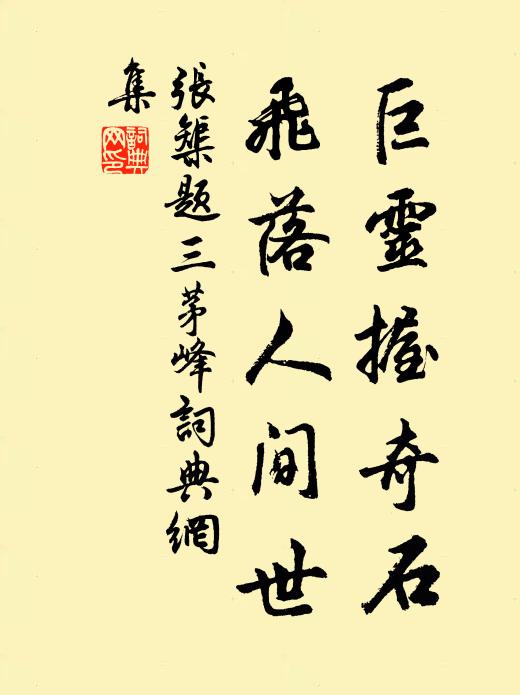 巨靈握奇石
飛落人間世
張榘題三茅峰詞典網
集
詞典
网印